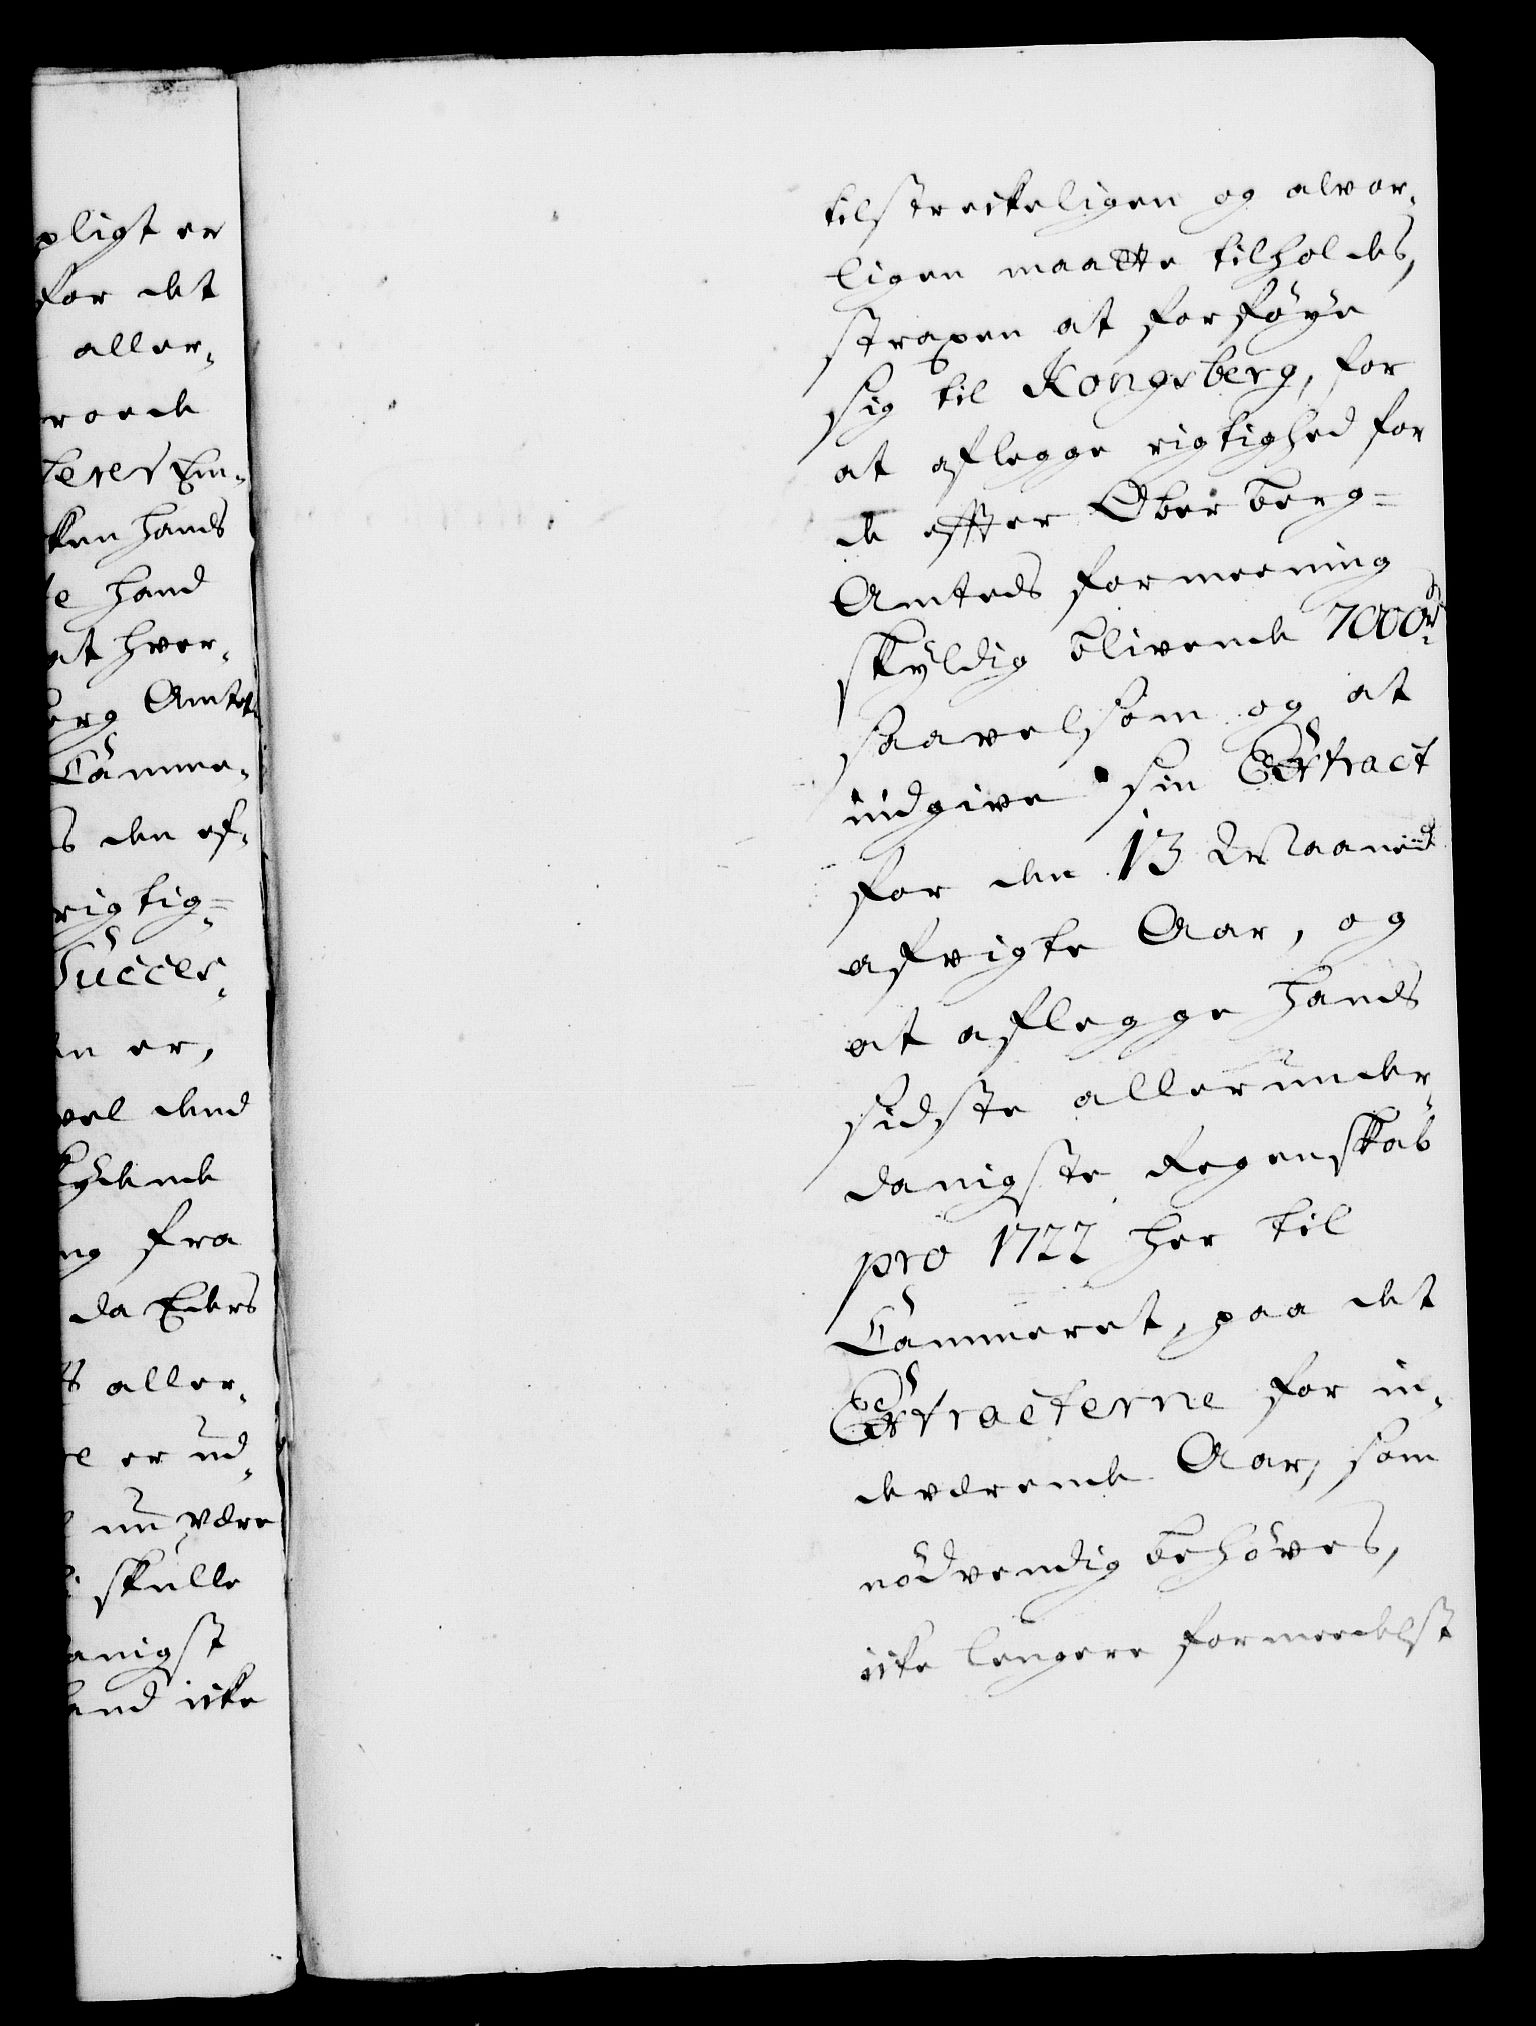 pligt er
for det
aller-
ken hands
hand
at hver-
erg Amtet
Cammer-
den af-
rigtig=
Succes-
en er,
vel dend
lydende
ng fra
da Eders
aller-
er ud-
nu være
skulle
anigst
and icke
tilstreckeligen og alvor-
ligen maatte tilholdes,
straxen at forføye
sig til Kongsberg, for
at aflegge rigtighed for
de effter Ober berg=
Amteds formeening
skyldig blivende 7000 rd
saavelsom og at
indgive sin Extract
for den 13 Maanedt
afvigte Aar, og
at aflegge hands
sidste allerunder-
danigste Regenskab
pro 1722 her til
Cammeret, paa det
Extracterne for in-
deværende Aar, som
nödvendig behöves,
icke lengere formeedelst